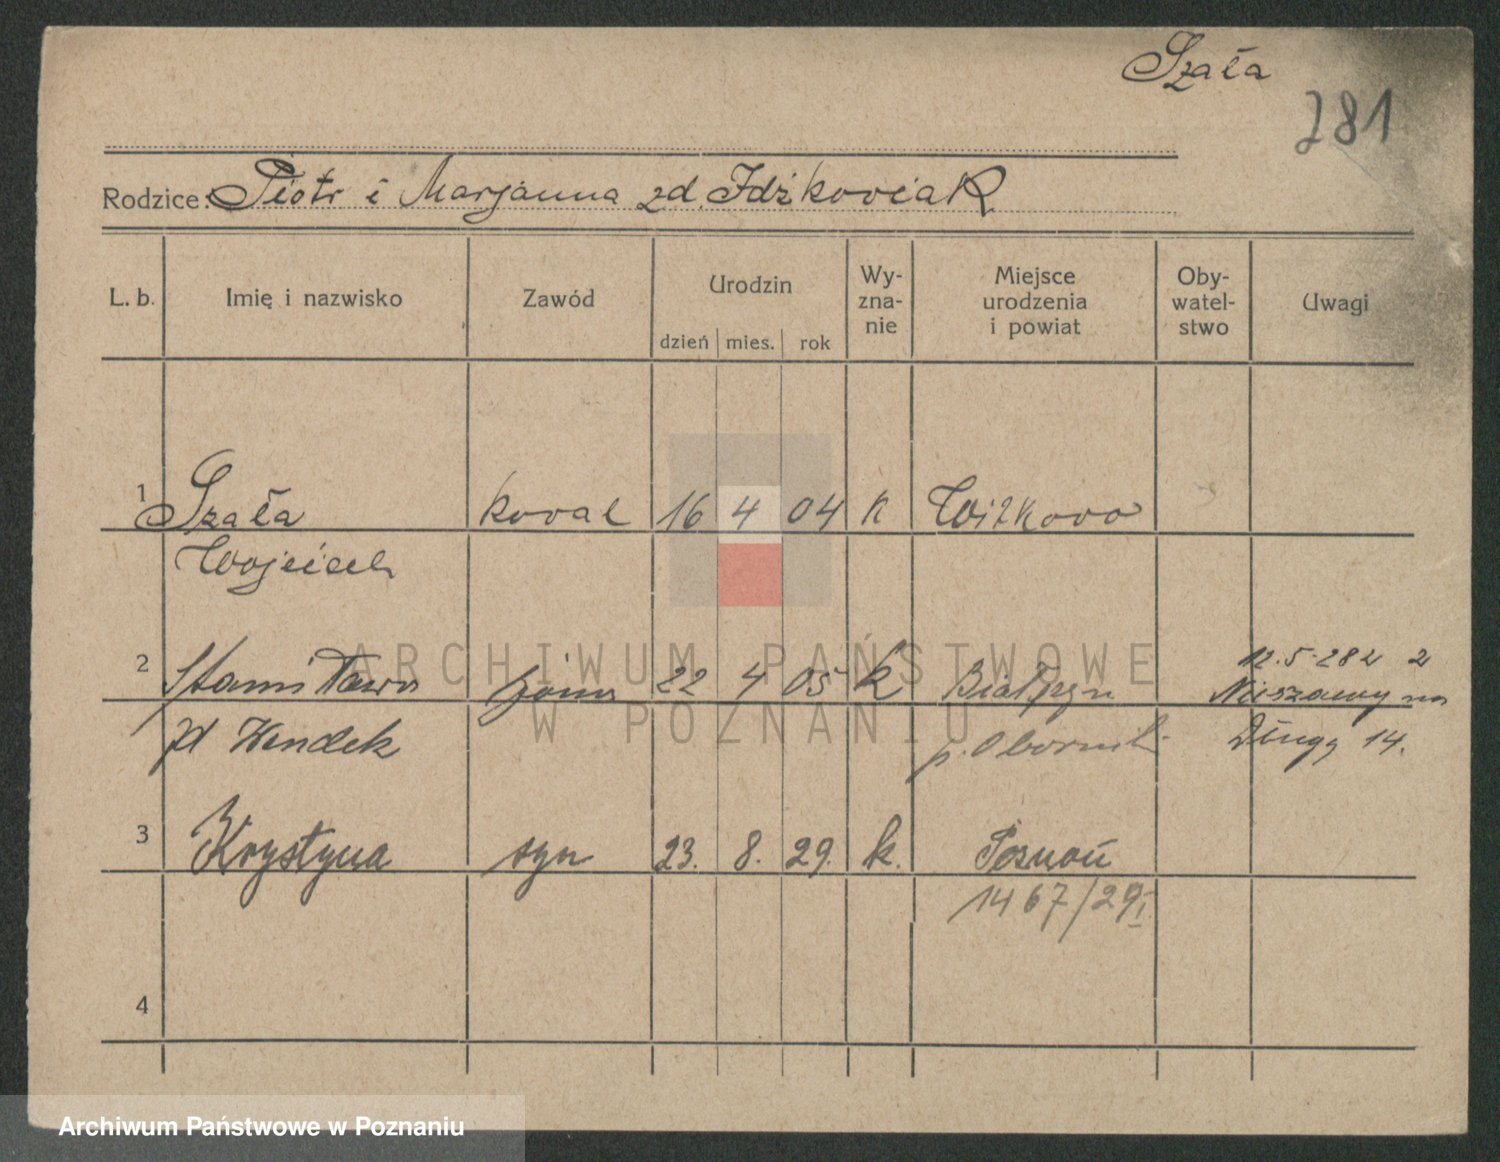 Szała
281
Rodzice: Piotr i Marjanna zd. Idźkowiak
L. b. Imię i nazwisko Zawód Urodzin Wy-zna-nie Miejsce urodzenia i powiat Oby-watel-stwo Uwagi
dzień mies. rok
1 Szała kowal 16 4 04 k Witkowo
Wojciech
ARCHIWUM PAŃSTWOWE
W POZNANIU
2 Stanisława żona 22 4 05 k 12.5.28 z
Nieszawy na
zd Wendek p. Oborniki Długą 14.
3 Krystyna syn 23. 8. 29. k. Poznań
1467/29 I
4
Archiwum Państwowe w Poznaniu